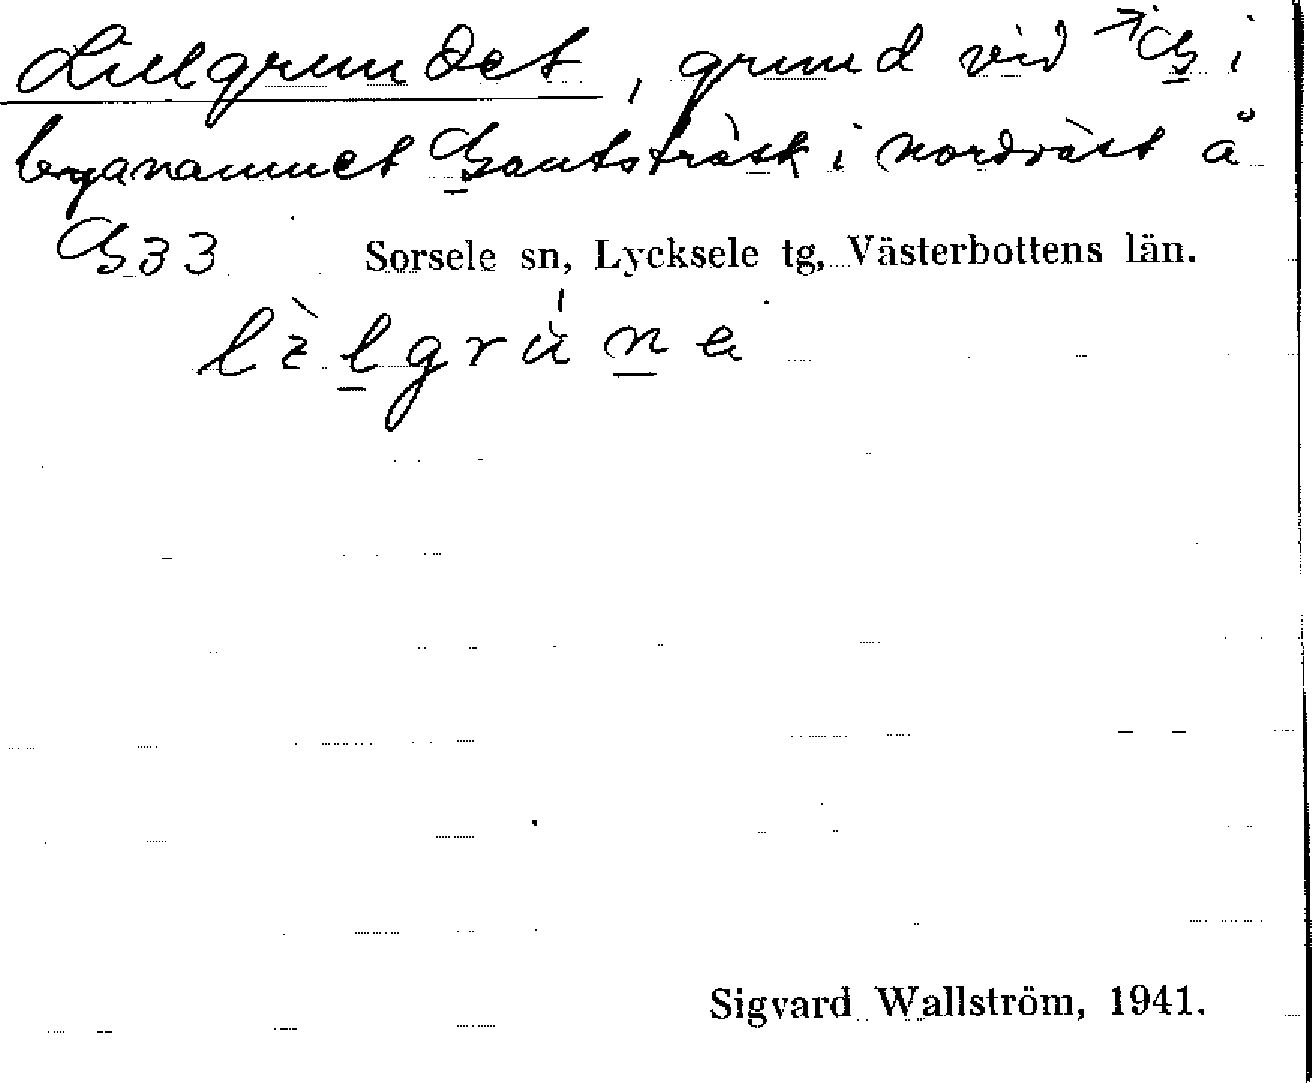 Lillgrundet, grund vid →G i
bynamnet Gautsträsk i nordväst å
G33 Sorsele sn, Lycksele tg, Västerbottens län.
Sigvard Wallström, 1941.